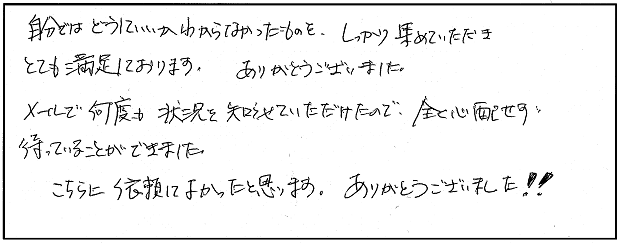 自分ではどうしていいかわからなかったものを、しっかり集めていただき
とても満足しております。 ありがとうございました。
メールで何度も状況を知らせていただけたので、全く心配せず
待っていることができました。
こちらに依頼してよかったと思います。 ありがとうございました!!